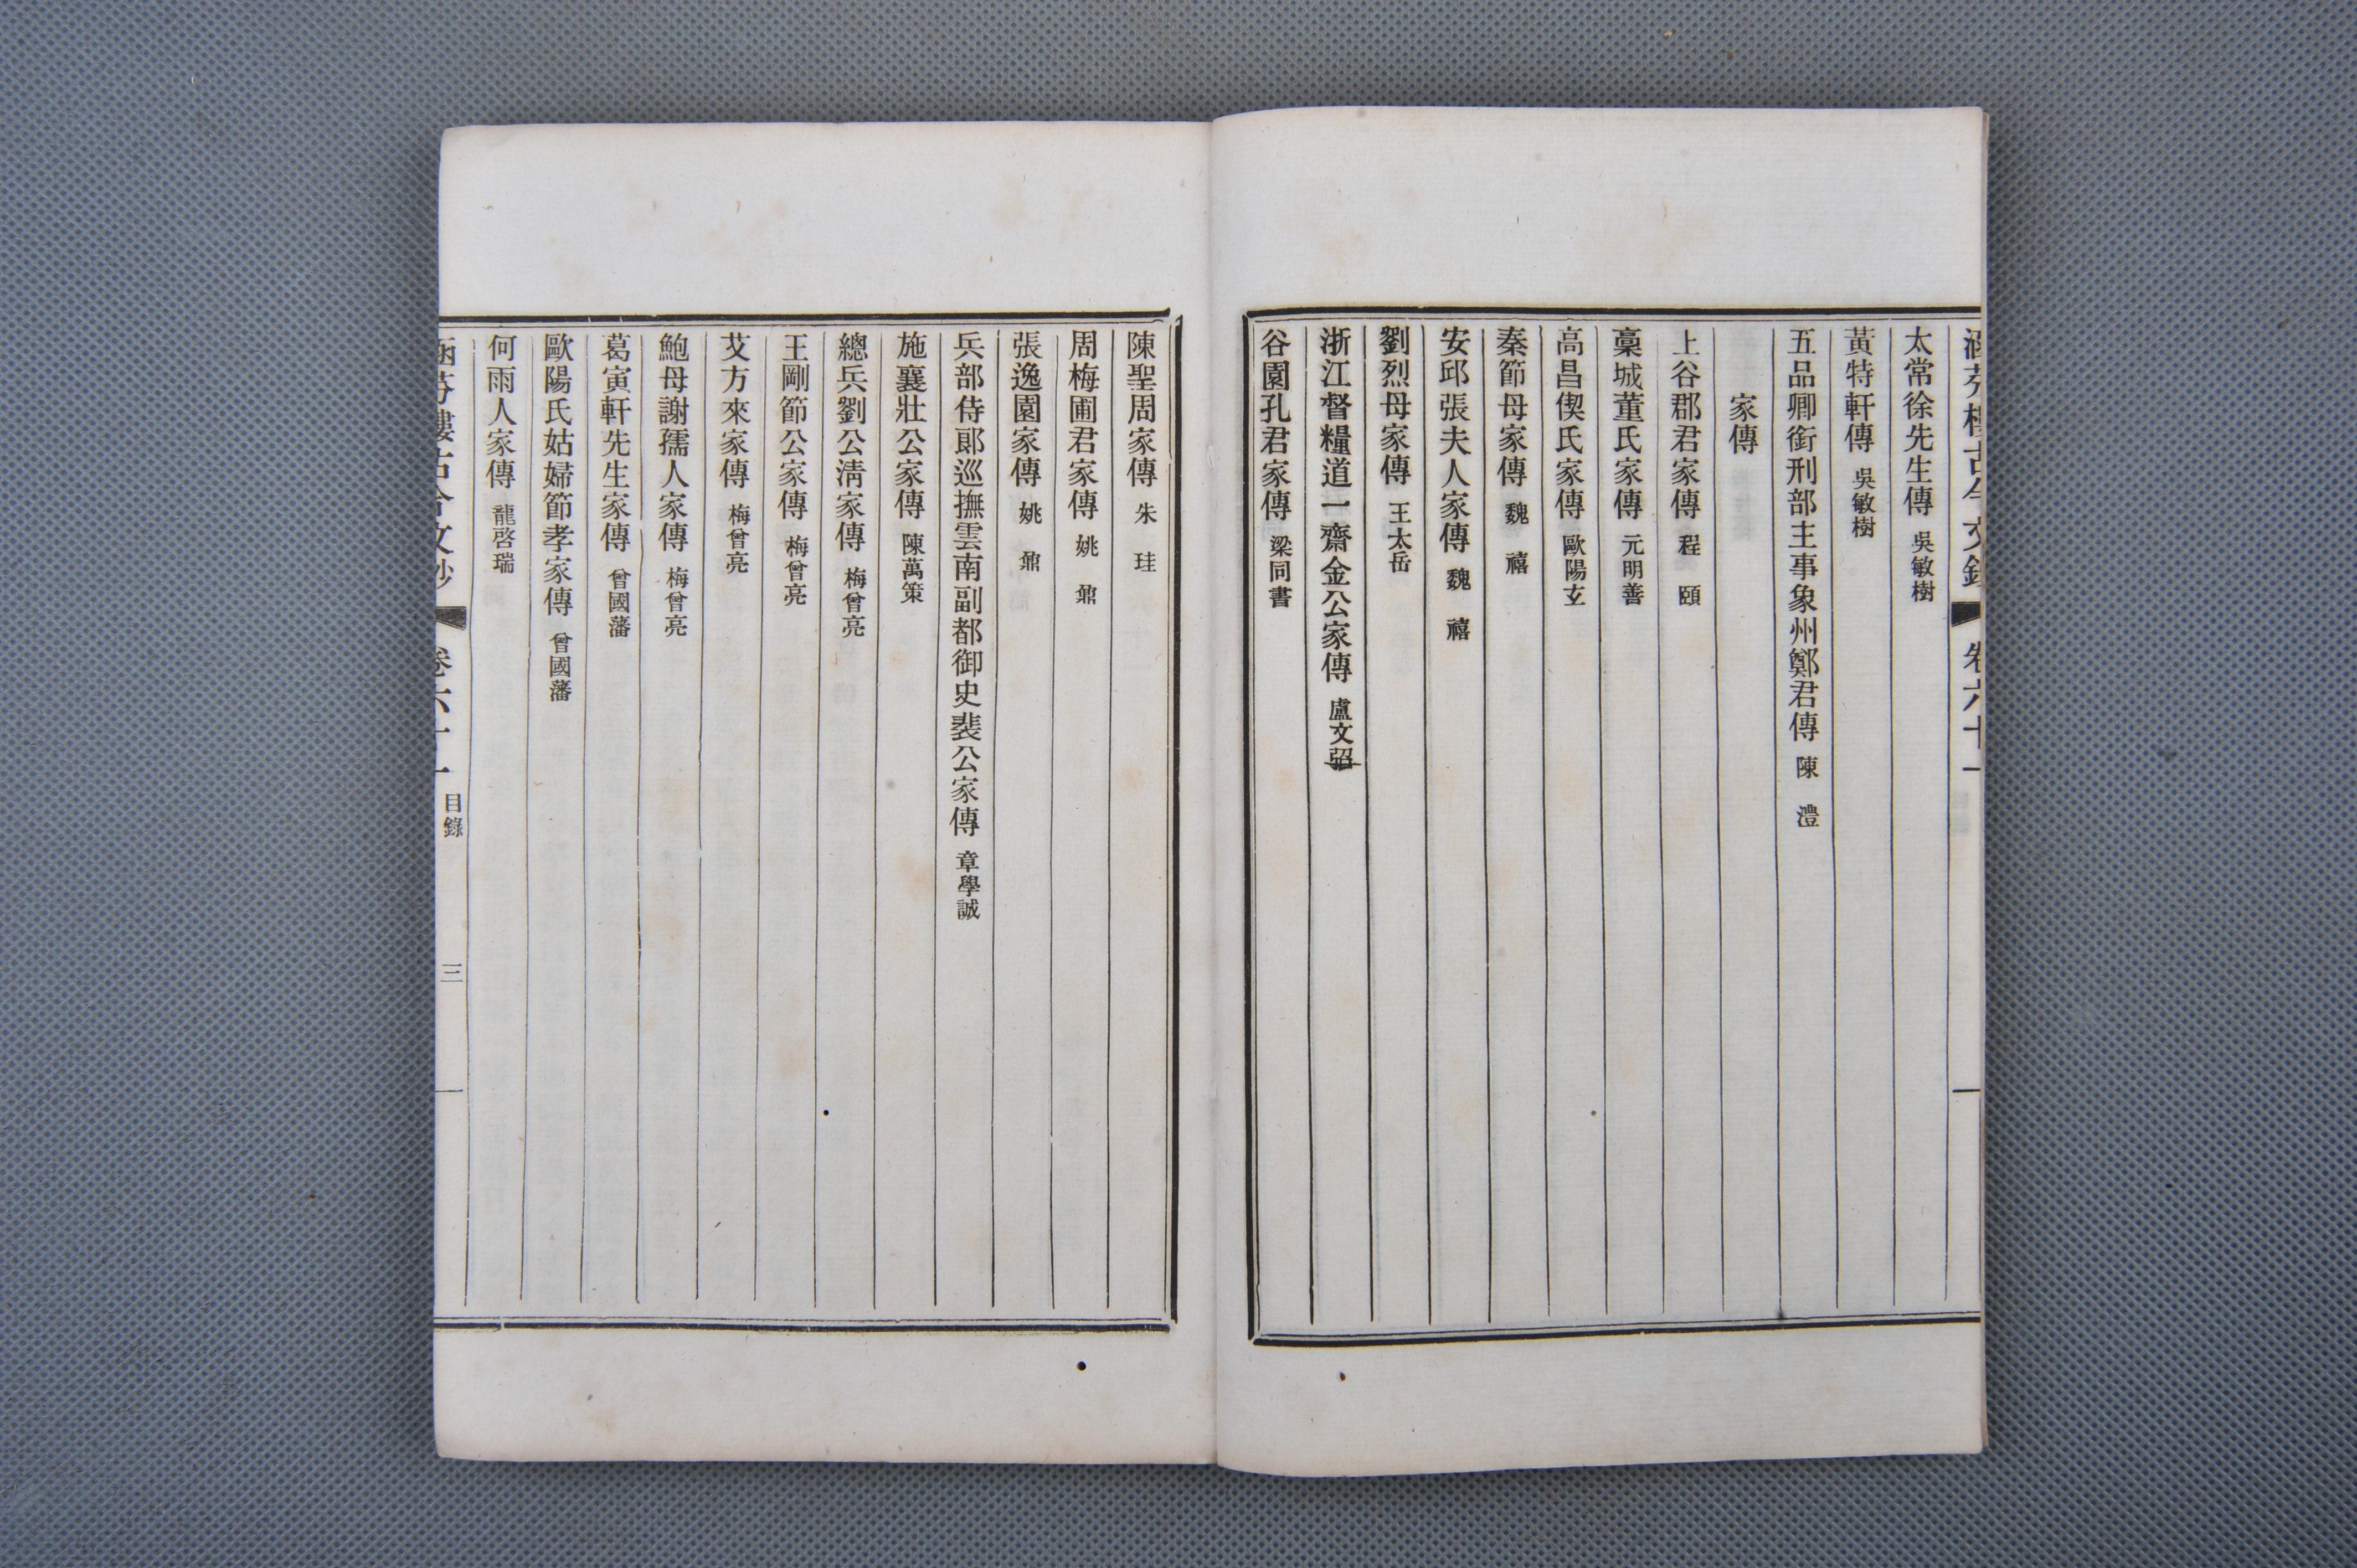 涵芬樓古今文鈔 卷六十一
太常徐先生傳 吳敏樹
黃特軒傳 吳敏樹
五品卿銜刑部主事象州鄭君傳 陳 澧
家傳
上谷郡君家傳 程 頤
稾城董氏家傳 元明善
高昌偰氏家傳 歐陽玄
秦節母家傳 魏 禧
安邱張夫人家傳 魏 禧
劉烈母家傳 王太岳
浙江督糧道一齋金公家傳 盧文弨
谷園孔君家傳 梁同書
陳聖周家傳 朱 珪
周梅圃君家傳 姚 鼐
張逸園家傳 姚 鼐
兵部侍郞巡撫雲南副都御史裴公家傳 章學誠
施襄壯公家傳 陳萬策
總兵劉公淸家傳 梅曾亮
王剛節公家傳 梅曾亮
艾方來家傳 梅曾亮
鮑母謝孺人家傳 梅曾亮
葛寅軒先生家傳 曾國藩
歐陽氏姑婦節孝家傳 曾國藩
何雨人家傳 龍啓瑞
涵芬樓古今文鈔 卷六十一 目錄 三